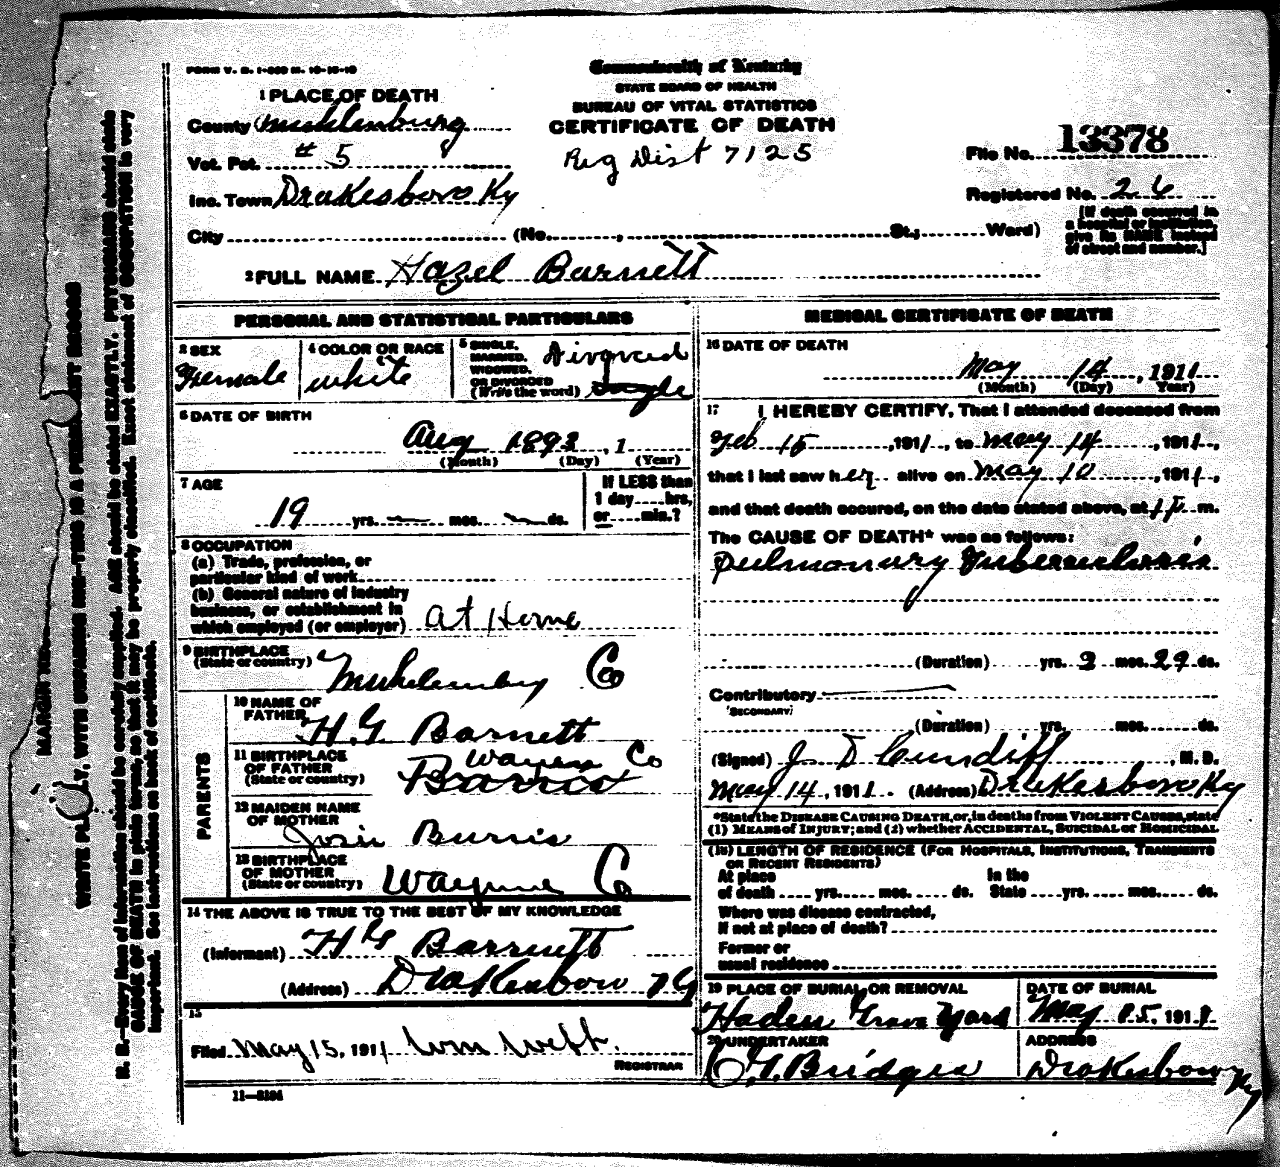 FORM V. S. 1-
Commonwealth of Kentucky
STATE BOARD OF HEALTH
BUREAU OF VITAL STATISTICS
CERTIFICATE OF DEATH
Reg Dist 7125
1 PLACE OF DEATH
County Muhlenburg
Vot. Pct. # 5
Inc. Town Drakesboro Ky
City (No. , St.; Ward)
File No. 13378
Registered No. 26
[If death occurred in
a hospital or institution,
give its NAME instead
of street and number.]
2 FULL NAME Hazel Barnett
PERSONAL AND STATISTICAL PARTICULARS
3 SEX
Female
4 COLOR OR RACE
white
5 SINGLE,
MARRIED,
WIDOWED,
OR DIVORCED
(Write the word)
Divorced
Single
6 DATE OF BIRTH
Aug 1892, 1
(Month) (Day) (Year)
7 AGE
19 yrs. — mos. — ds.
If LESS than
1 day....hrs,
or....min.?
8 OCCUPATION
(a) Trade, profession, or
particular kind of work
(b) General nature of industry
business, or establishment in
which employed (or employer) at Home
9 BIRTHPLACE
(State or country) Muhlenburg Co
PARENTS
10 NAME OF
FATHER H.G Barnett
11 BIRTHPLACE
OF FATHER
(State or country) Wayne Co
12 MAIDEN NAME
OF MOTHER Josie Burris
13 BIRTHPLACE
OF MOTHER
(State or country) Wayne Co
14 THE ABOVE IS TRUE TO THE BEST OF MY KNOWLEDGE
(Informant) H G Barnett
(Address) Drakesboro Ky
15
Filed May 15, 1911 Wm West.
REGISTRAR
11—
MEDICAL CERTIFICATE OF DEATH
16 DATE OF DEATH
May 14, 1911
(Month) (Day) Year)
17 I HEREBY CERTIFY, That I attended deceased from
Feb 15, 1911, to May 14, 1911,
that I last saw her alive on May 10, 1911,
and that death occured, on the date stated above, at m.
The CAUSE OF DEATH* was as follows:
Pulmonary Tuberculosis
(Duration) yrs. 2 mos. 29 ds.
Contributory
(SECONDARY)
(Duration) yrs. mos. ds.
(Signed) J. D Cundiff, M. D.
May 14, 1911 (Address) Drakesboro Ky
*State the DISEASE CAUSING DEATH, or, in deaths from VIOLENT CAUSES, state
(1) MEANS OF INJURY; and (2) whether ACCIDENTAL, SUICIDAL or HOMICIDAL
(18) LENGTH OF RESIDENCE (FOR HOSPITALS, INSTITUTIONS, TRANSIENTS
OR RECENT RESIDENTS)
At place In the
of death yrs. mos. ds. State yrs. mos. ds.
Where was disease contracted,
If not at place of death?
Former or
usual residence
19 PLACE OF BURIAL OR REMOVAL
Haden Grave Yard
DATE OF BURIAL
May 15, 1911
20 UNDERTAKER
C. G. Bridges
ADDRESS
Drakesboro Ky
MARGIN RE
WRITE PLAINLY, WITH UNFADING INK—THIS IS A PERMANENT RECORD
N. B.—Every item of information should be carefully supplied. AGE should be stated EXACTLY. PHYSICIANS should state
CAUSE OF DEATH in plain terms, so that it may be properly classified. Exact statement of OCCUPATION is very
important. See instructions on back of certificate.